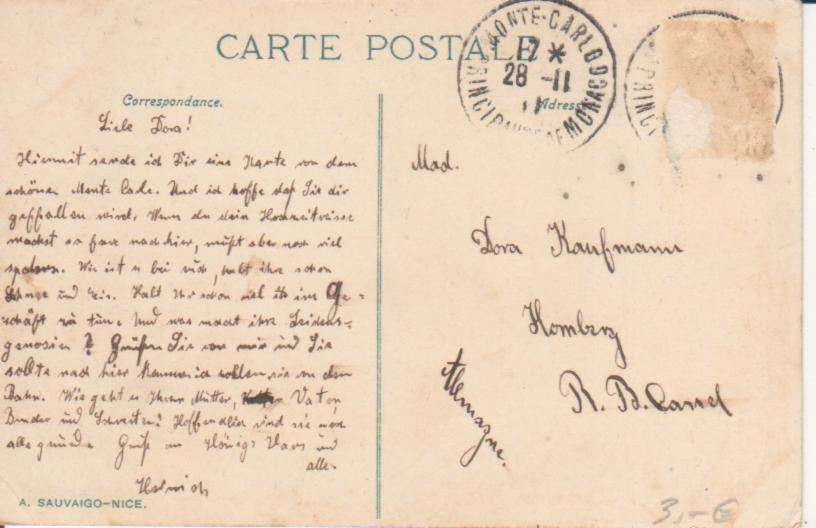 CARTE POSTALE
MONTE-CARLO
17 *
28 -11
11
PRINCIPAUTÉ DE MONACO
PRINCI
Correspondance.
Adresse
Liebe Dora!
Hiermit sende ich Dir eine Karte von dem
schönen Monte Carlo. Und ich hoffe daß Sie dir
geffallen wird. Wenn du dein Hochzeitreise
machst so fare nach hier, mußt aber noch viel
sparen. Wie ist es bei euch, habt ihr schon
Schnee und Eis. Habt Ihr schon viel im Ge-
schäft zu tun. Und was macht ihre Leidens-
genosin? Grüßen Sie von mir und Sie
sollte nach hier kommen
Bahn. Wie geht es Ihrer Mutter, Vater,
Bruder und Schwester? Hoffendlich sind sie noch
alle gesund. Gruß an Königs Hans und
alle.
Mad.
Dora Kaufmann
Homberg
R. B. Cassel
Allemagne.
A. SAUVAIGO-NICE.
3,- €